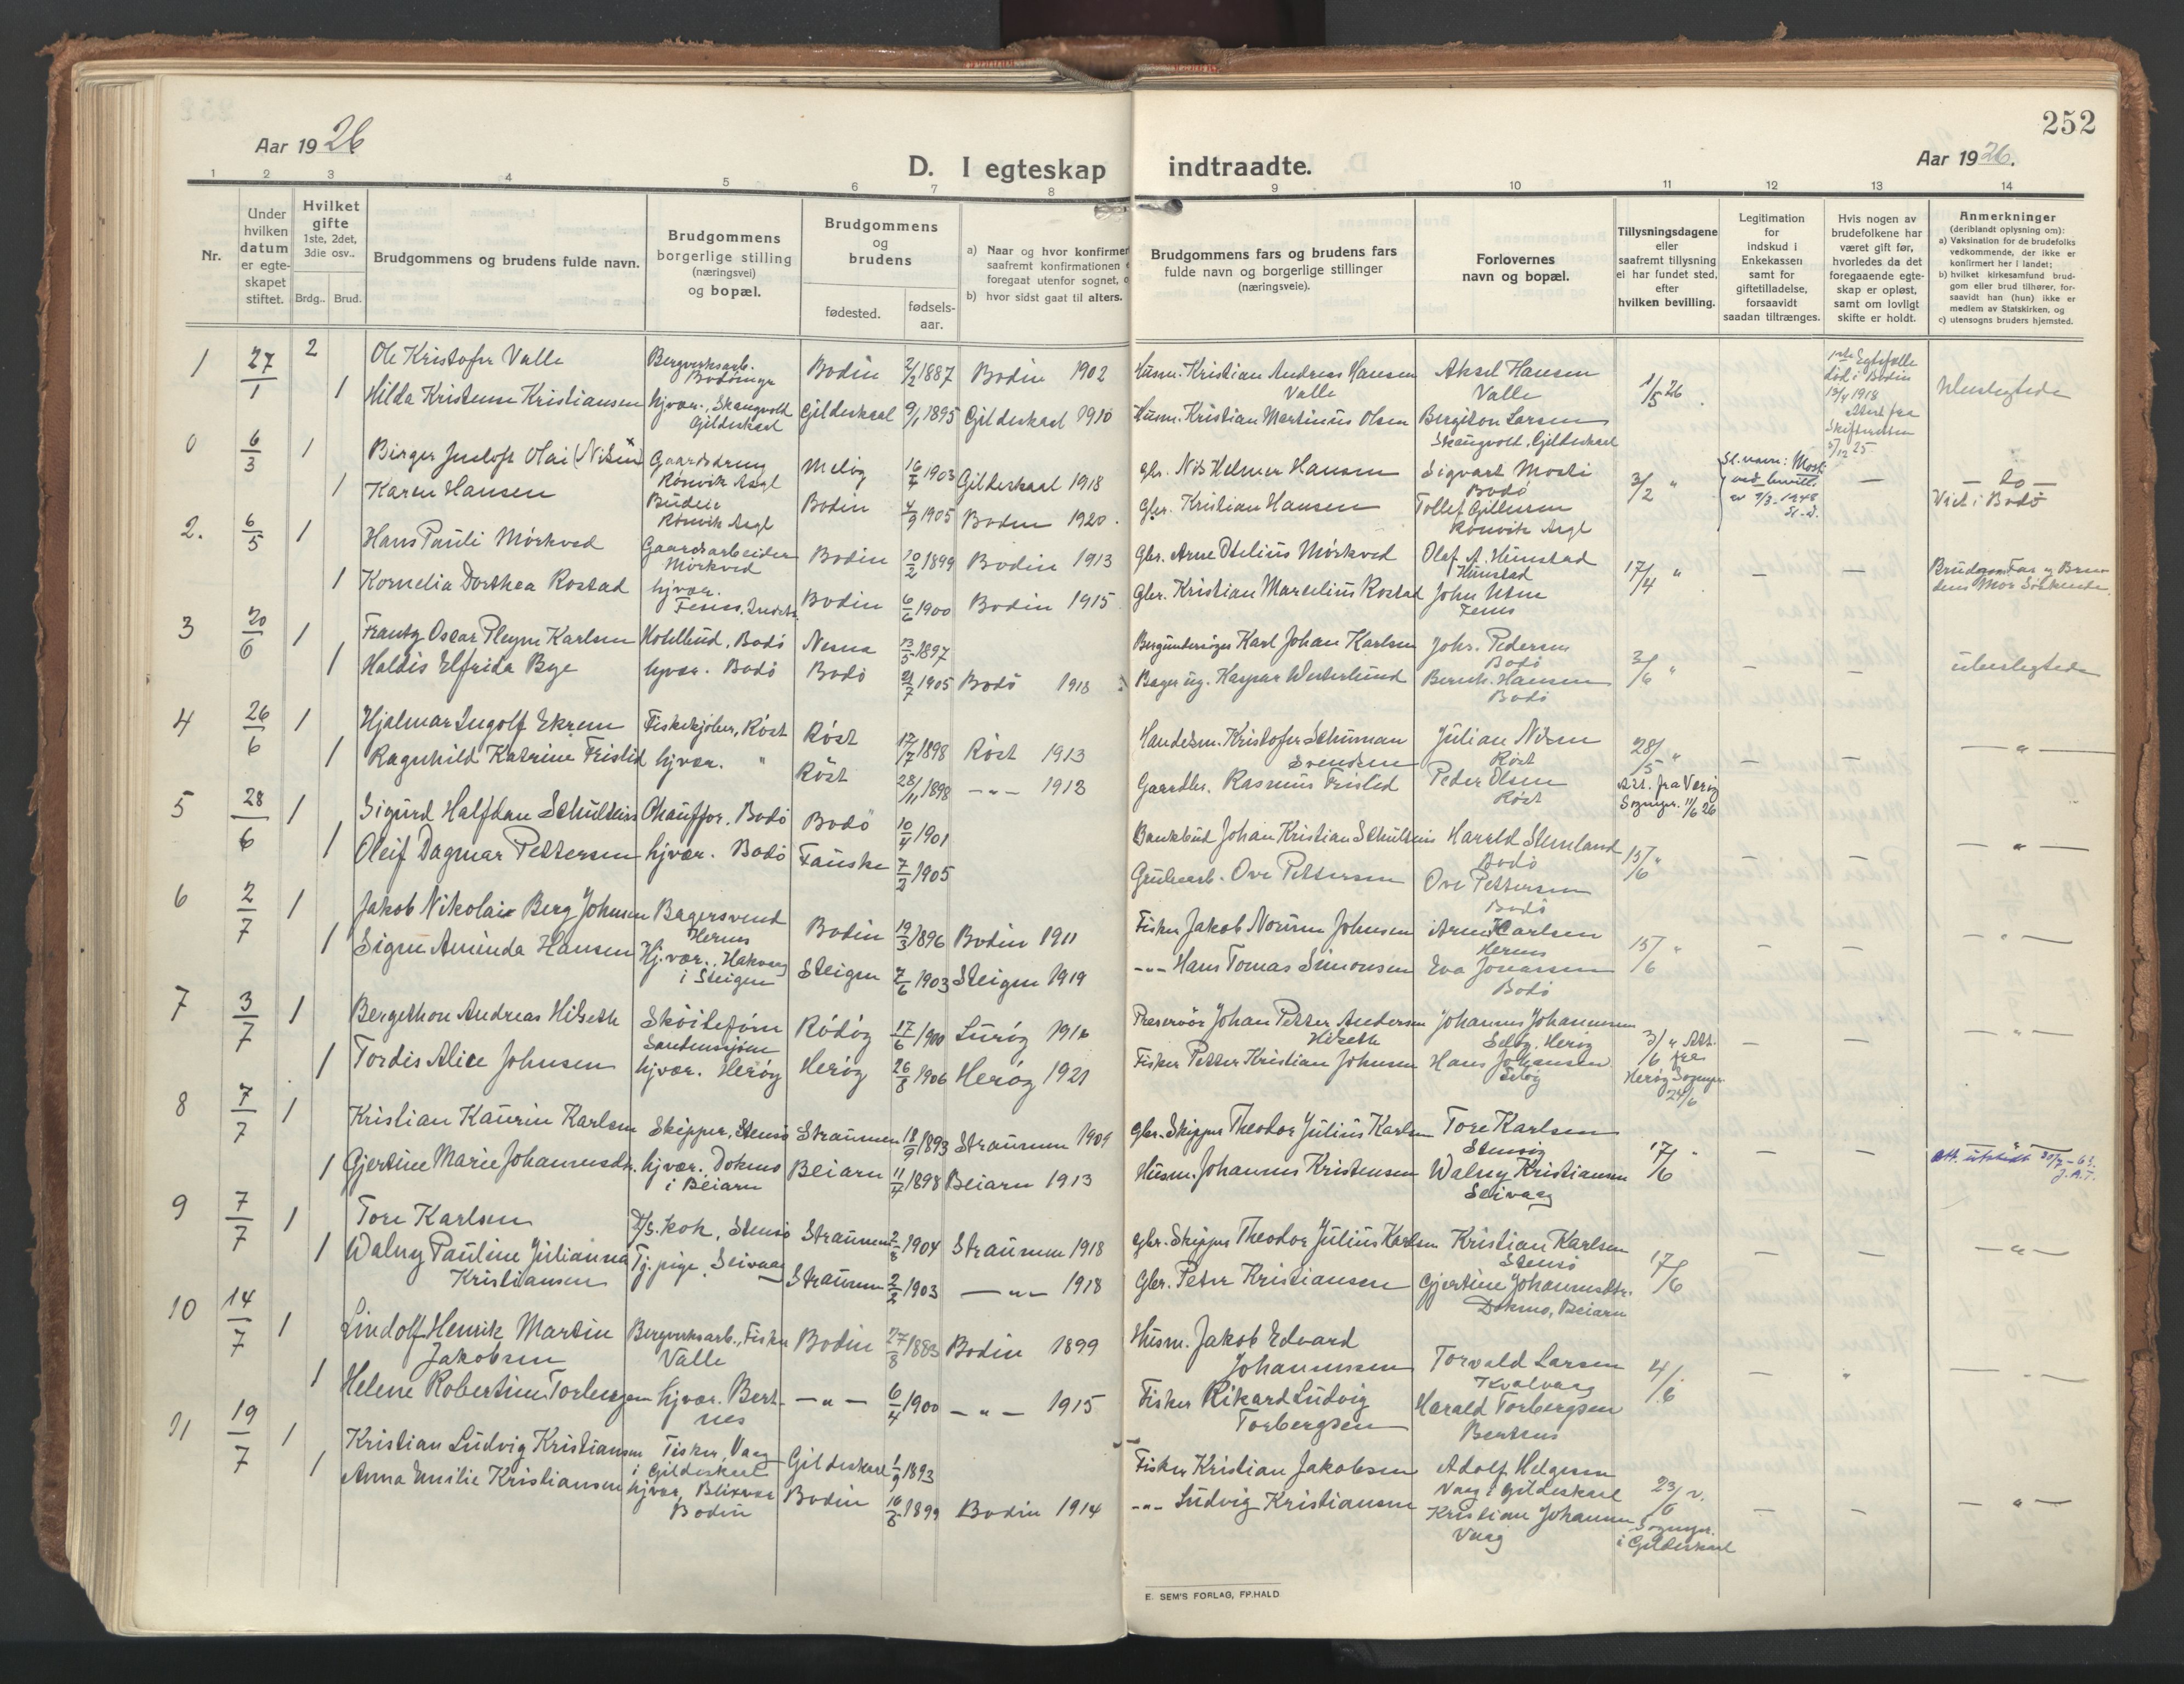 252
Aar 1926
Aar 1926.
D. I egteskap indtraadte.
1 2 3 4 5 6 7 8 9 10 11 12 13 14
Nr.
Under hvilken datum er egte-skapet stiftet.
Hvilket gifte
1ste, 2det, 3die osv..
Brdg.. Brud.
Brudgommens og brudens fulde navn.
Brudgommens borgerlige stilling (næringsvei) og bopæl.
Brudgommens og brudens
fødested.
fødsels-aar.
a) Naar og hvor konfirmer
saafremt konfirmationen e
foregaat utenfor sognet, o
b) hvor sidst gaat til alters.
Brudgommens fars og brudens fars
fulde navn og borgerlige stillinger
(næringsveie).
Forlovernes
navn og bopæl.
Tillysningsdagene
eller
saafremt tillysning
ei har fundet sted,
efter
hvilken bevilling.
Legitimation
for
indskud i
Enkekassen
samt for
giftetilladelse,
forsaavidt
saadan tiltrænges.
Hvis nogen av
brudefolkene har
været gift før,
hvorledes da det
foregaaende egte-
skap er opløst,
samt om lovligt
skifte er holdt.
Anmerkninger
(deriblandt oplysning om):
a) Vaksination for de brudefolks
vedkommende, der ikke er
konfirmert her i landet;
b) hvilket kirkesamfund brud-
gom eller brud tilhører, for-
saavidt han (hun) ikke er
medlem av Statskirken, og
c) utensogns bruders hjemsted.
1 27/1 2 Ole Kristofer Valle Bergverksarb. Bodin 2/2 1887 Bodin 1902 Husm. Kristian Andreas Hansen Valle Aksel Hansen Valle 1/5 26 Ubeslegtede
1 Hilda Kristense Kristiansen hjvær., Skaugvold Gildeskaal Gildeskaal 9/1 1895 Gildeskaal 1910 Husm. Kristian Martinius Olsen Bergiton Larsen Skaugvold, Gildeskaal
1ste Egtefælle død i Bodin 13/4 1918 Attest fra Skifteretten 5/12 25
0 6/3 1 Birger Olai (Nilsen) Gaardsdreng Rønvik Asyl Meløy 16/7 1903 Gildeskaal 1918 Gbr. Nils Helmer Hansen Sigvart Mosti Bodø 3/2 " — — Do —
1 Karen Hansen Budeie Rønvik Asyl Bodin 4/9 1905 Bodin 1920. Gbr. Kristian Hansen Tollef Gillesen Rønvik Asyl Viet i Bodø
Sl.navn: Mosti ved bevill. av 9/3-1948
2. 6/5 1 Hans Pauli Mørkved Gaardsarbeider Mørkved Bodin 10/2 1899 Bodin 1913 Gbr. Arne Otelius Mørkved Olaf A. Hunstad Hunstad 17/4 " — — Brudgom. Far og Bru-
1 Kornelia Dorthea Rostad hjvær. Bodin 6/6 1900 Bodin 1915 Gbr. Kristian Marselius Rostad John Utne Fenes dens Mor Søskende.
3 20/6 1 Frantz Oscar Pleym Karlsen Hotelbud, Bodø Nesna 13/5 1897 Karl Johan Karlsen Johs. Pedersen Bodø 3/6 " — — ubeslegtede
1 Haldis Elfrida Bye hjvær. Bodø Bodø 21/7 1905 Bodø 1918 Bager Kaspar Westerlund Bernh. Hansen Bodø
4 26/6 1 Hjalmar Ingolf Ekrem Fiskekjøber, Røst Røst 17/7 1898 Røst 1913 Handelsm. Kristofer Schuman Svendsen Julian Nilsen Røst 28/5 " — — — " —
1 Ragnhild Katrine Fristid hjvær. " Røst 28/11 1898 -"- 1913 Gaardbr. Rasmus Fristed Peder Olsen Røst Att. fra Værøy Sognepr. 11/6 26
5 28/6 1 Sigurd Halfdan Schultzius Chauffør. Bodø Bodø 10/4 1901 Bankbud Johan Kristian Schultzius Harald Stemland Bodø 13/6 " — — — " —
1 Oleif Dagmar Pettersen hjvær. Bodø Fauske 7/2 1905 Grubearb. Ove Pettersen Ove Pettersen Bodø
6 2/7 1 Jakob Nikolai Berg Johnsen Bagersvend Hernes Bodin 19/3 1896 Bodin 1911 Fisker Jakob Johnsen Arne Carlsen Hernes 13/6 " — — — " —
1 Signe Aminda Hansen Hj.vær., i Steigen Steigen 7/6 1903 Steigen 1919 -"- Hans Tomas Simonsen Eva Jonassen Bodø
7 3/7 1 Bergethon Andreas Hilseth Skøitefører Sandnessjøen Rødøy 17/6 1900 Lurøy 1916 Johan Petter Andersen Hilseth Johannes Johannessen Seløy. Herøy 3/6 " Att. fra — — — " —
1 Tordis Alice Johnsen hjvær. Herøy Herøy 26/8 1906 Herøy 1921 Fisker Petter Kristian Johnsen Hans Johansen Seløy Herøy Sognepr. 24/6
8 7/7 1 Kristian Kaurin Karlsen Skipper, Stensø Straumen 18/9 1893 Straumen 1909 Gbr.-Skipper Theodor Julius Karlsen Tore Karlsen 17/6 " — — Att. utstedt 30/7-63. J.A.T.
1 Gjertine Marie Johannesdtr. hjvær. Dokmo i Beiarn Beiarn 11/4 1898 Beiarn 1913 Husm. Johannes Kristensen Walny Kristiansen Seivaag
9 7/7 1 Tore Karlsen D/S. kok, Stensø Straumen 2/8 1904 Straumen 1918 Gbr.-Skipper Theodor Julius Karlsen Kristian Karlsen Stensø 17/6 — — — " —
1 Walny Pauline Julianna Kristiansen Tj.pige, Seivaag Straumen 2/2 1903 — " — 1918 Gbr. Peter Kristiansen Gjertine Johannesdtr. Dokmo, Beiarn
10 14/7 1 Lindolf Henrik Martin Jakobsen Bergverksarb., Fisker Valle Bodin 27/8 1883 Bodin 1899 Husm. Jakob Edvard Johannessen Torvald Larsen Kvalvaag 4/6 — " — " —
1 Helene Robertine Torbergsen hjvær. Bertnes — " — 6/4 1900 — " — 1915 Fisker Rikard Ludvig Torbergsen Harald Torbergsen Bertnes
11 19/7 1 Kristian Ludvig Kristiansen Fisker, Vaag i Gildeskaal Gildeskaal 1/9 1893 Fisker Kristian Jakobsen Adolf Helgesen Vaag i Gildeskaal 23/6 v. — — — " —
1 Anna Emilie Kristiansen hjvær, Blixvær Bodin Bodin 16/8 1899 Bodin 1914 -"- Ludvig Kristiansen Kristian Johansen Vaag Sognepr. i Gildeskaal
E. SEM'S FORLAG, FP.HALD